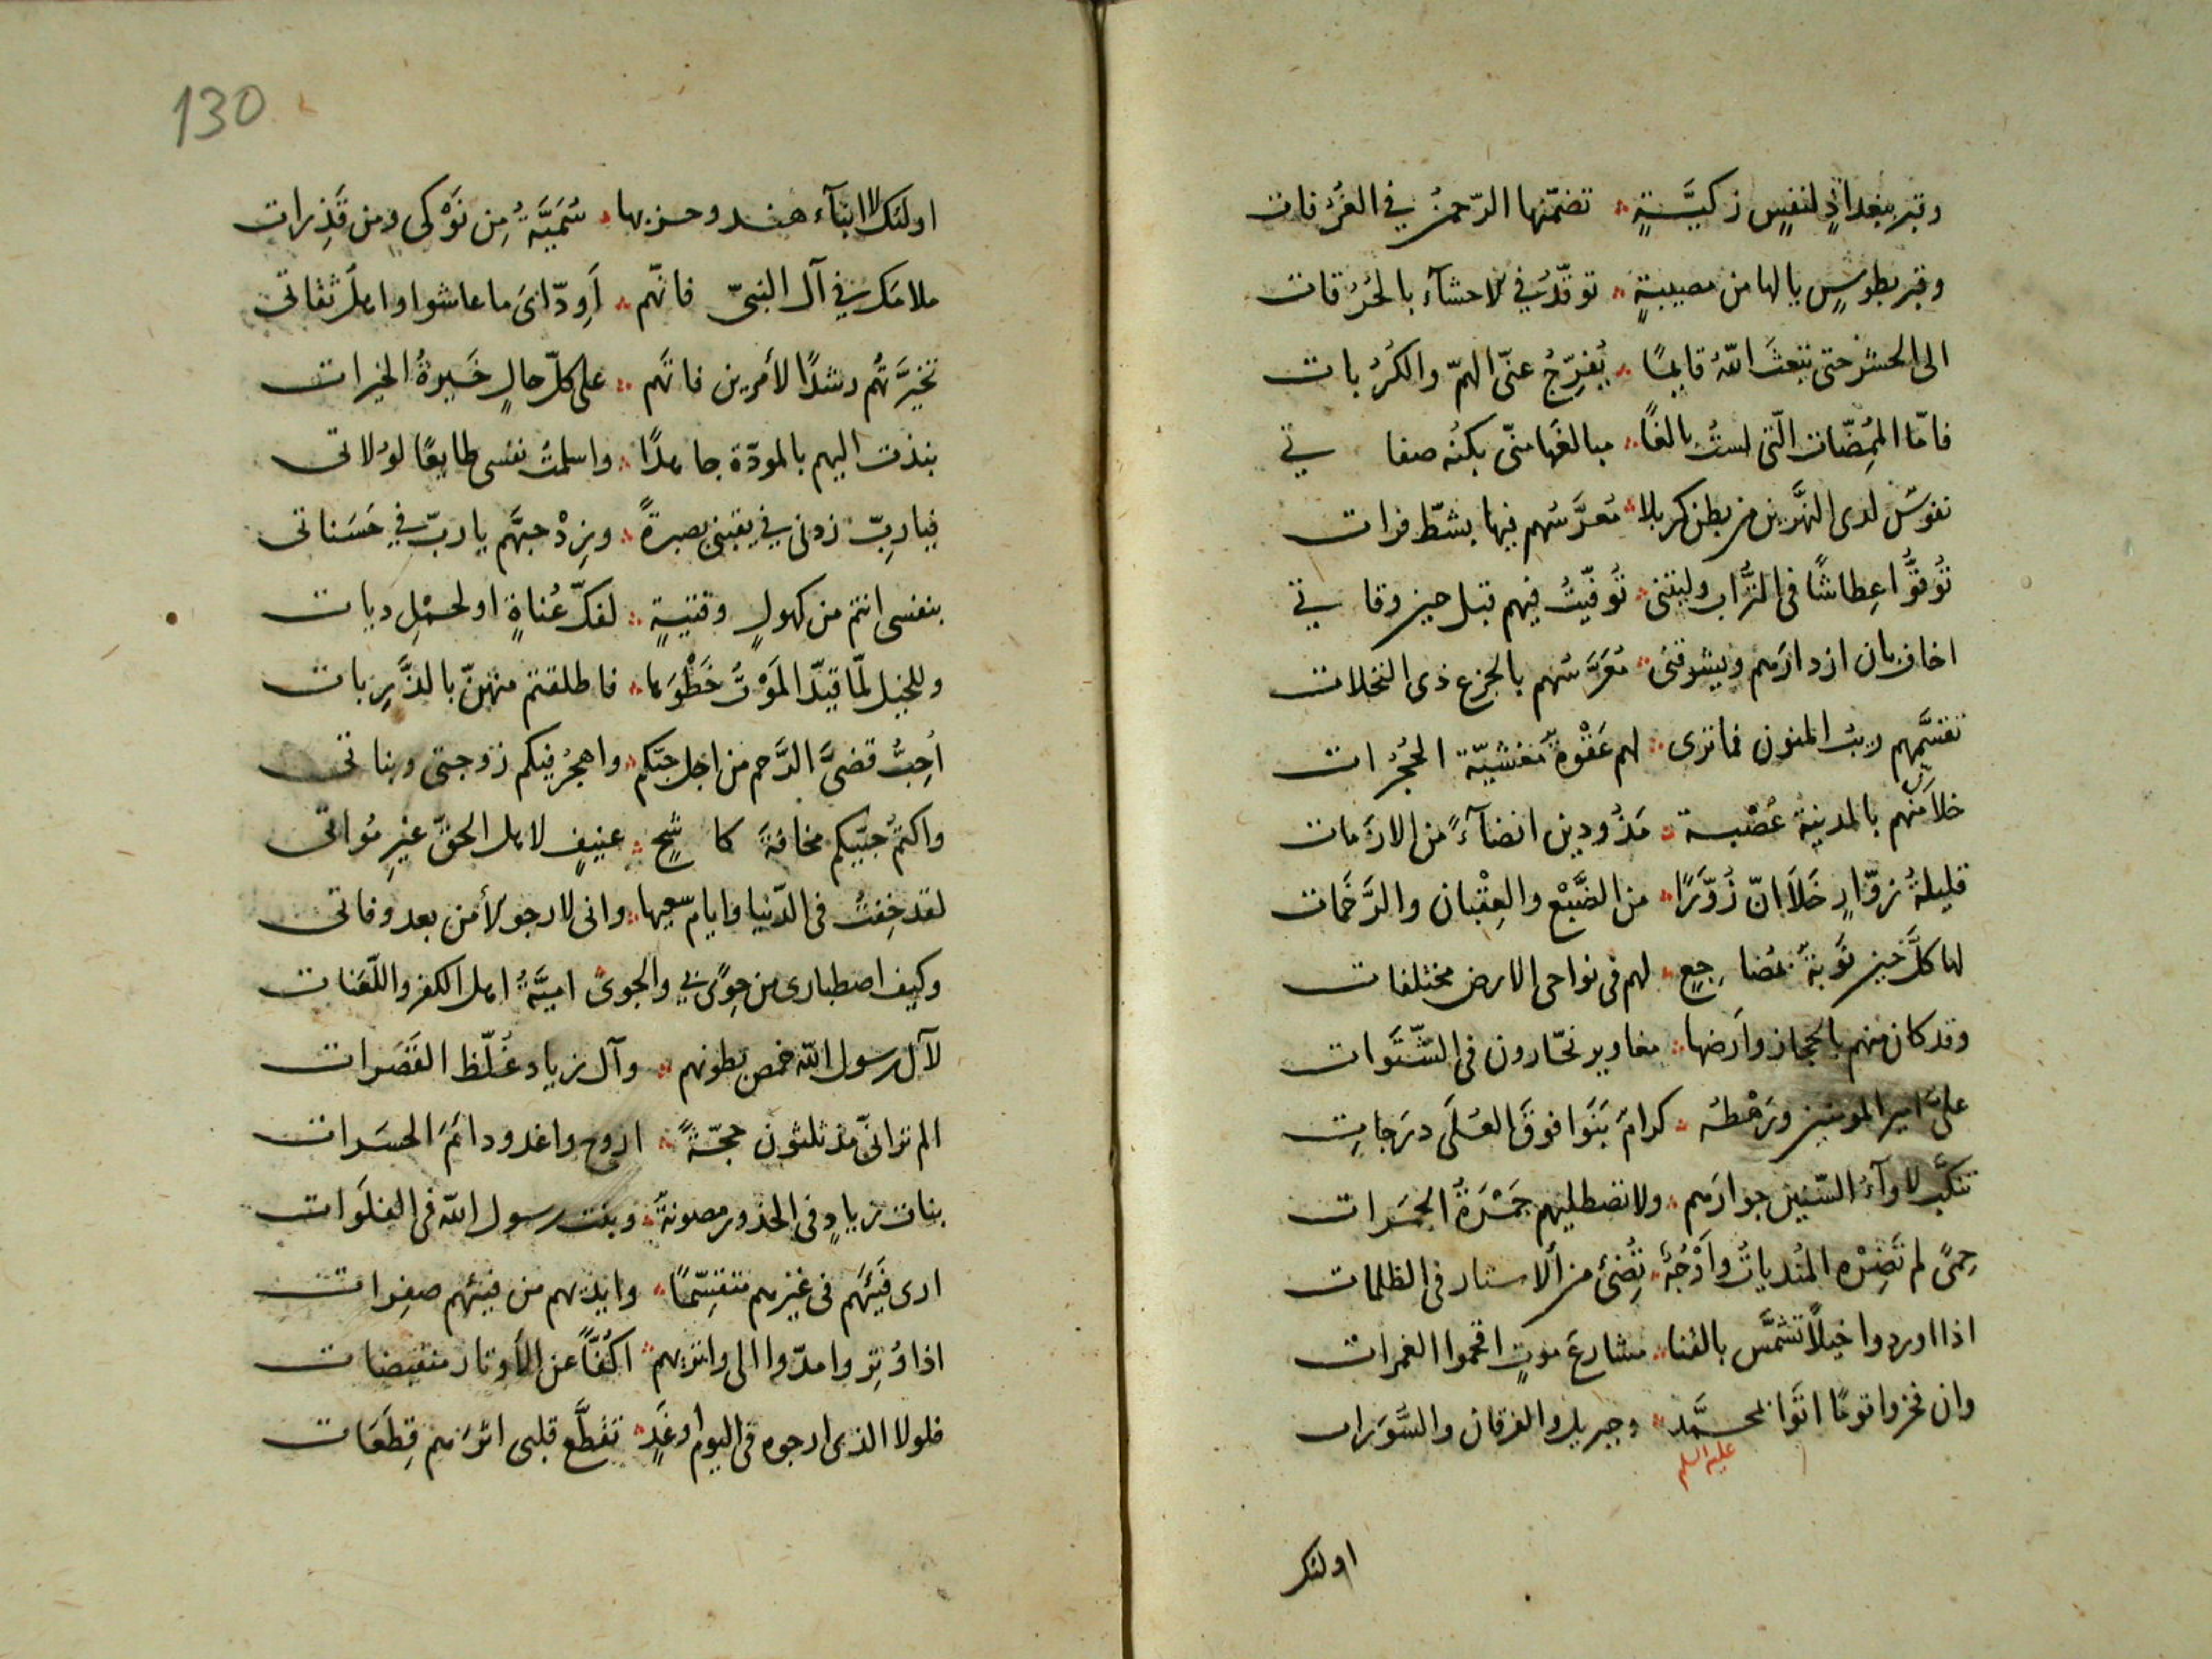 وقبر ببغداذٍ لنفسٍ زكيَّةٍ ؞ تضمّنها الرّحمنُ في الغُرُفات
وقبر بطوسٍ يا لها من مصيبةٍ ؞ توقّدُ في الاحشآء بالحُرُقات
الى الحشر حتى يبعثَ اللهُ قايمًا ؞ يُفرِّجُ عنّي الهمّ والكُرُبات
فامّا المُمِضّات الّتي لستُ بالغًا ؞ مبالغَها منّي بكنُه صفاتي
نفوسٌ لدى النهَّرين من بطن كربلا ؞ مُعرَّسُهم فيها بشطّ فرات
تُوفّوا عِطاشًا في التُّراب وليتني ؞ تُوفّيتُ فيهم قبل حين وفاتي
اخاف بان ازدارَهم ويشوقني ؞ مُعَرَّسُهم بالجزع ذي النخلات
تقسَّمهم ريبُ المنون فما ترى ؞ لهم عَقْوةً مَغشيّة الحُجُرات
خلا انّ منهم بالمدينة عُصْبة ؞ مَذُودين انضآءً من الازَمات
قليلةُ زوّارٍ خَلَا انّ زُوّرًا ؞ من الضَّبْع والعِقْبان والرَّخَمات
لها كلَّ حين نَوبةٌ بمُضاجعٍ ؞ لهم في نواحي الارض مختلفات
وقد كان منهم بالحجاز وأرضها ؞ مغاوير نحّارون في السَّنَوات
عليّ امير المومنين ورَهْطه ؞ كرامٌ بَنَوا فوقَ العُلَى درَجاتِ
تنكَّب لاوآءُ السّنين جوارَهم ؞ ولا تصطليهم جَمْرَةُ الجَمَرات
حِمىً لم تَضِرْه المُنديات وأوْجُهٌ ؞ تُضئ من الاستار في الظلمات
اذا اوردوا خيلًا تشمَّس بالقنا ؞ مشارعَ موتٍ اقحموا الغمرات
وان فخروا يومًا اتَوا بمحمَّد ؞ وجبريل والفرقان والسُّوَرات
عليه السلم
اولئك
130
اولئك لا ابنآء هند وحزبها ؞ سُمَيَّةُ مِن نَوْكى ومن قَذِرات
ملامَك في آل النبيّ فانّهم ؞ أوِدّائيَ ما عاشوا واهل ثقاتي
تخيَّرتُهم رشدًا لأمرين فانّهم ؞ على كلّ حالٍ خَيرةُ الخيرات
نبذت اليهم بالمودّة جاهدًا ؞ واسلمتُ نفسي طايعًا لوُلاتي
فيا ربّ زدني في يقيني بصيرةً ؞ وزِدْ حبَّهم يا ربّ في حَسَناتي
بنفسي انتم من كهولٍ وفتيةٍ ؞ لفكّ عُناةٍ او لحمْلِ ديات
وللخيل لمّا قيّد المَوْتُ خَطْوَها ؞ فاطلقتم منهنّ بالذَّرِبات
أُحبُّ قصيَّ الرَّحم من اجل حبّكم ؞ واهجُر فيكم زوجتي وبناتي
واكتُمُ حُبّيكم مخافةَ كاشحٍ ؞ عنيفٍ لاهل الحقّ غيرِ مُواتي
لقد خِفتُ في الدّنيا وايام سعيها ؞ واني لارجو لأمن بعد وفاتي
وكيف اصطباري من جوًى لي والجوى اميَّةُ اهل الكفر واللّعَنات
لآل رسول الله خمص بطونهم ؞ وآل زياد غُلّظ القَصَرات
الم تر انّي مذ ثلثون حجّةً ؞ اروح واغدو دائمَ الحسَرات
بنات زيادٍ في الخدور مصونةٌ ؞ وبنت رسول الله في الفلَوات
ارى فَيْئَهم في غيرهم متقسّمًا ؞ وايديهم من فيئهم صفِرات
اذا وُتِروا مدّوا الى واتريهم ؞ اكُفًّا عن الأوتار منقبضات
فلولا الذي ارجوه في اليوم او غَدٍ ؞ تقطَّع قلبي اثرَهم قِطَعَات